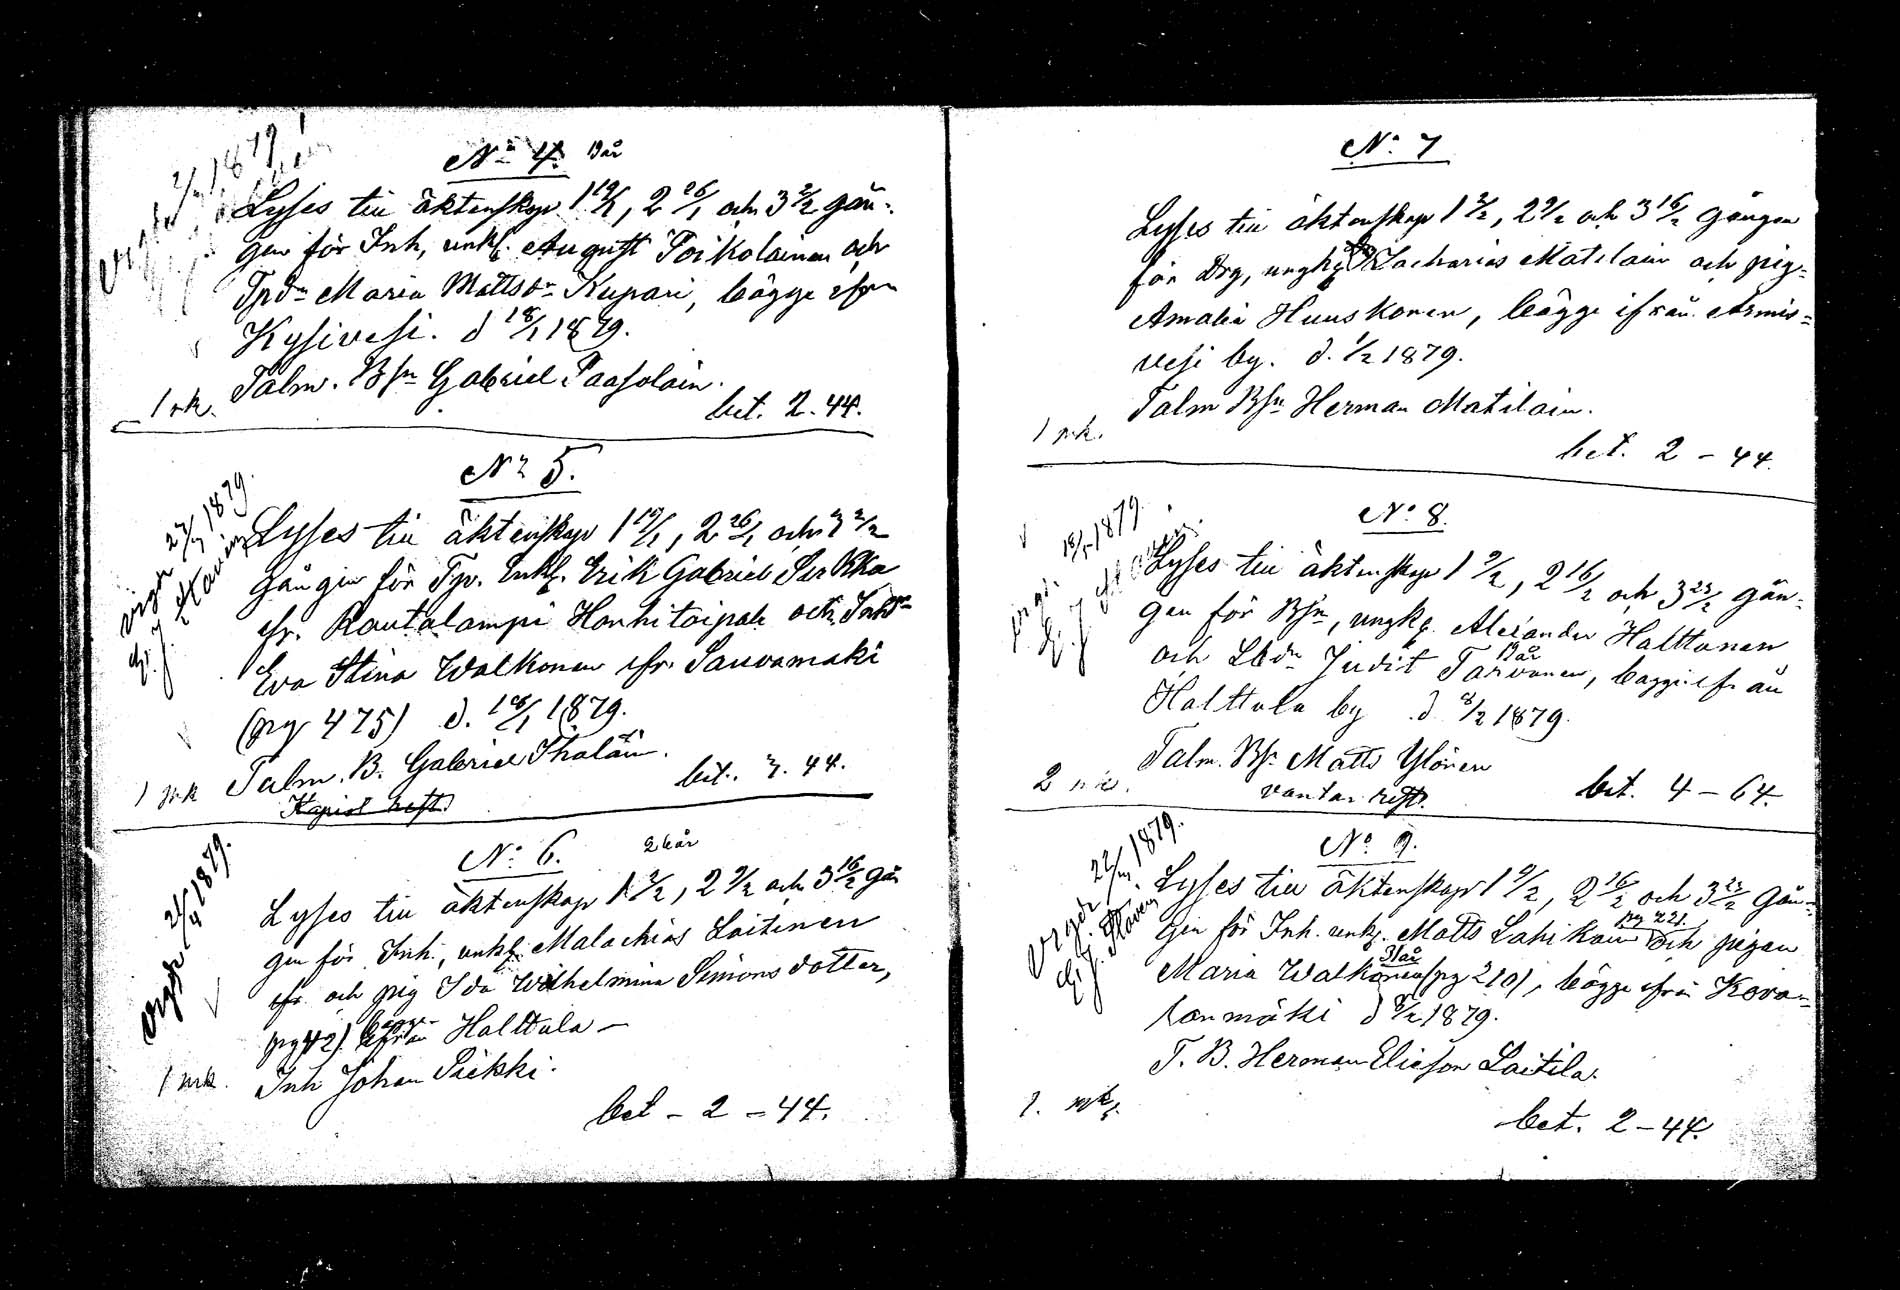 No 4. 19 år
Lyses till äktenskap 1 19/1, 2 26/1 och 3 2/2 gån-
gen för Inh, unkl. August Poikolainen och
Tpdr Maria Mattsdr Kupari, bägge ifrn
Kysivesi. d 18/1 1879.
Talm. Bsn Gabriel Paasolain.
1 mk. bet. 2.44.
No 5.
vigde 27/3 1879.
Lyses till äktenskap 1 19/1, 2 26/1 och 3 2/2
gången för Tp. Enkl. Erik Gabriel Sirkka
ifr. Rautalampi Hanhitaipale och Inhdr
Eva Stina Walkonen ifr. Sauvamäki
(pg 475) d. 18/1 1879.
Talm. B. Gabriel Ihalain.
1 mk bet. 2. 44.
No 6. 26 år
vigde 21/4 1879.
Lyses till äktenskap 1 2/2, 2 9/2 och 3 16/2 gån
gen för Inh., unkl. Malachias Laitinen
ifr och pig Ida Wilhelmina Simonsdotter,
pg 42). bägge ifrån Halttula —
1 mk. Inh Johan Piekki.
bet - 2 - 44.
No. 7
Lyses till äktenskap 1 2/2, 2 9/2 och 3 16/2 gången
för Drg, ungkg Zacharias Matilain och pig-
Amalia Huuskonen, bägge ifrån Armis-
vesi by. d. 1/2 1879.
Talm Bsn Herman Matilain.
1 mk.
bet. 2 - 44.
No. 8.
18/5 1879.
Lyses till äktenskap 1 9/2, 2 16/2 och 3 23/2 gån-
gen för Bsn, ungkg. Alexander Halttunen
och Lbdr Judit Tarvanen, 19 år bägge ifrån
Halttula by d 8/2 1879.
Talm. Bsn Matts Ylönen
2 mk. vantar rest. bet. 4 - 64.
No 9.
vigde 22/3 1879.
Lyses till äktenskap 1 9/2, 2 16/2 och 3 23/2 gån-
gen för Inh. unkl. Matts Lahikain pg 221. och pigan
Maria Walkonen 31 år (pg 210), bägge ifrån Kova-
lanmäki d 8/2 1879.
T. B. Herman Eliasson Laitila.
1. mk.
bet. 2 - 44.